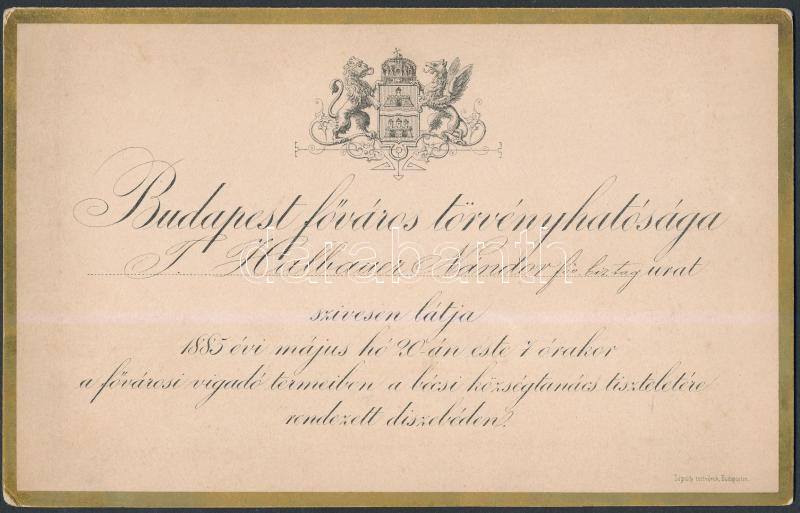 Budapest főváros törvényhatósága
T. Halbauer Nándor főv. biz. tag urat
szivesen látja
1885 évi május hó 20-án este 7 órakor
a fővárosi vigadó termeiben a bécsi községtanács tiszteletére
rendezett díszebéden.
darabanth
Budapesten.